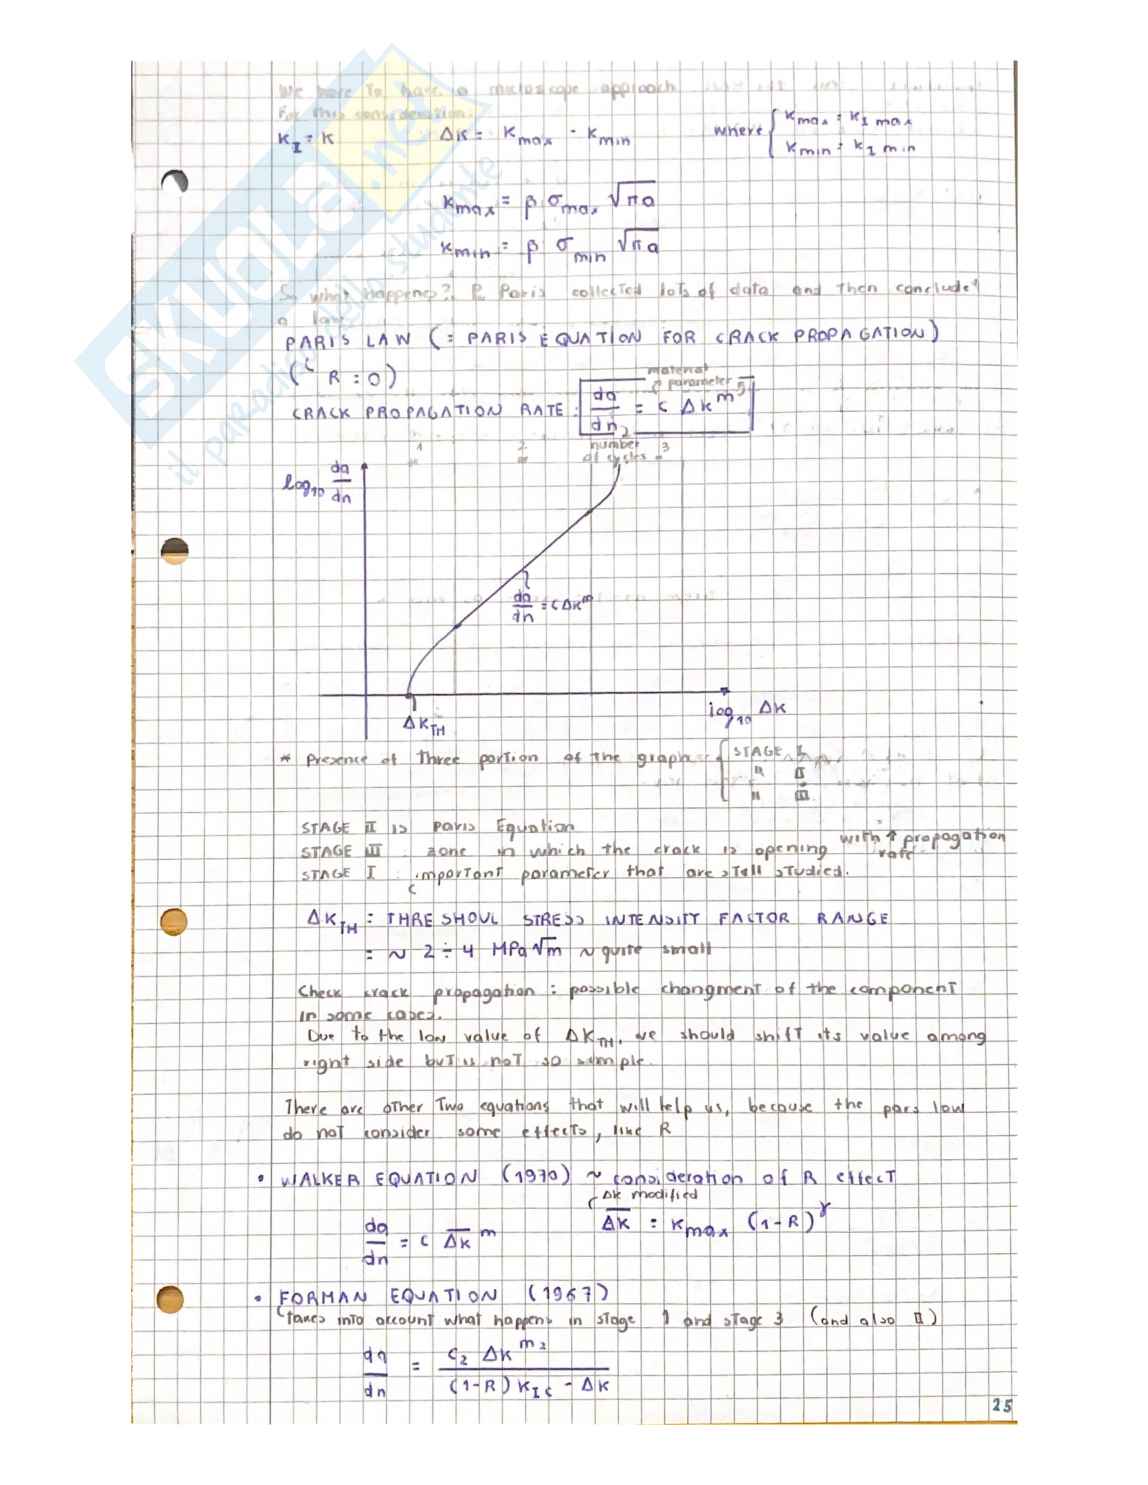 We have to have a microscope approach
For this consideration.
K_I = K    ΔK = K_max - K_min    where { K_max = K_I max
K_min = K_I min
K_max = β σ_max √πa
K_min = β σ_min √πa
So what happens? P. Paris collected lots of data and then conclude
a law
PARIS LAW (= PARIS EQUATION FOR CRACK PROPAGATION)
( R = 0)
material
parameter
CRACK PROPAGATION RATE : da/dn = C ΔK^m
number
of cycles
1    2    3
log10 da/dn
da/dn = C ΔK^m
ΔK_TH
log10 ΔK
* Presence of three portion of the graph { STAGE I
" II
" III
STAGE II is paris Equation
STAGE III : zone in which the crack is opening with ↑ propagation rate
STAGE I : important parameter that are still studied.
ΔK_TH = THRESHOUL STRESS INTENSITY FACTOR RANGE
= ~ 2 ÷ 4 MPa√m ~ quite small
Check crack propagation : possible changment of the component
in some cases.
Due to the low value of ΔK_TH, we should shift its value among
right side but is not so simple.
There are other two equations that will help us, because the paris law
do not consider some effects, like R
• WALKER EQUATION (1970) ~ consideration of R effect
ΔK modified
da/dn = C ΔK̅^m    ΔK̅ = K_max (1-R)^γ
• FORMAN EQUATION (1967)
takes into account what happens in stage 1 and stage 3 (and also II)
da/dn = C_2 ΔK^m_2 / (1-R) K_Ic - ΔK
25
SKUOLA.net
il paradiso dello studente